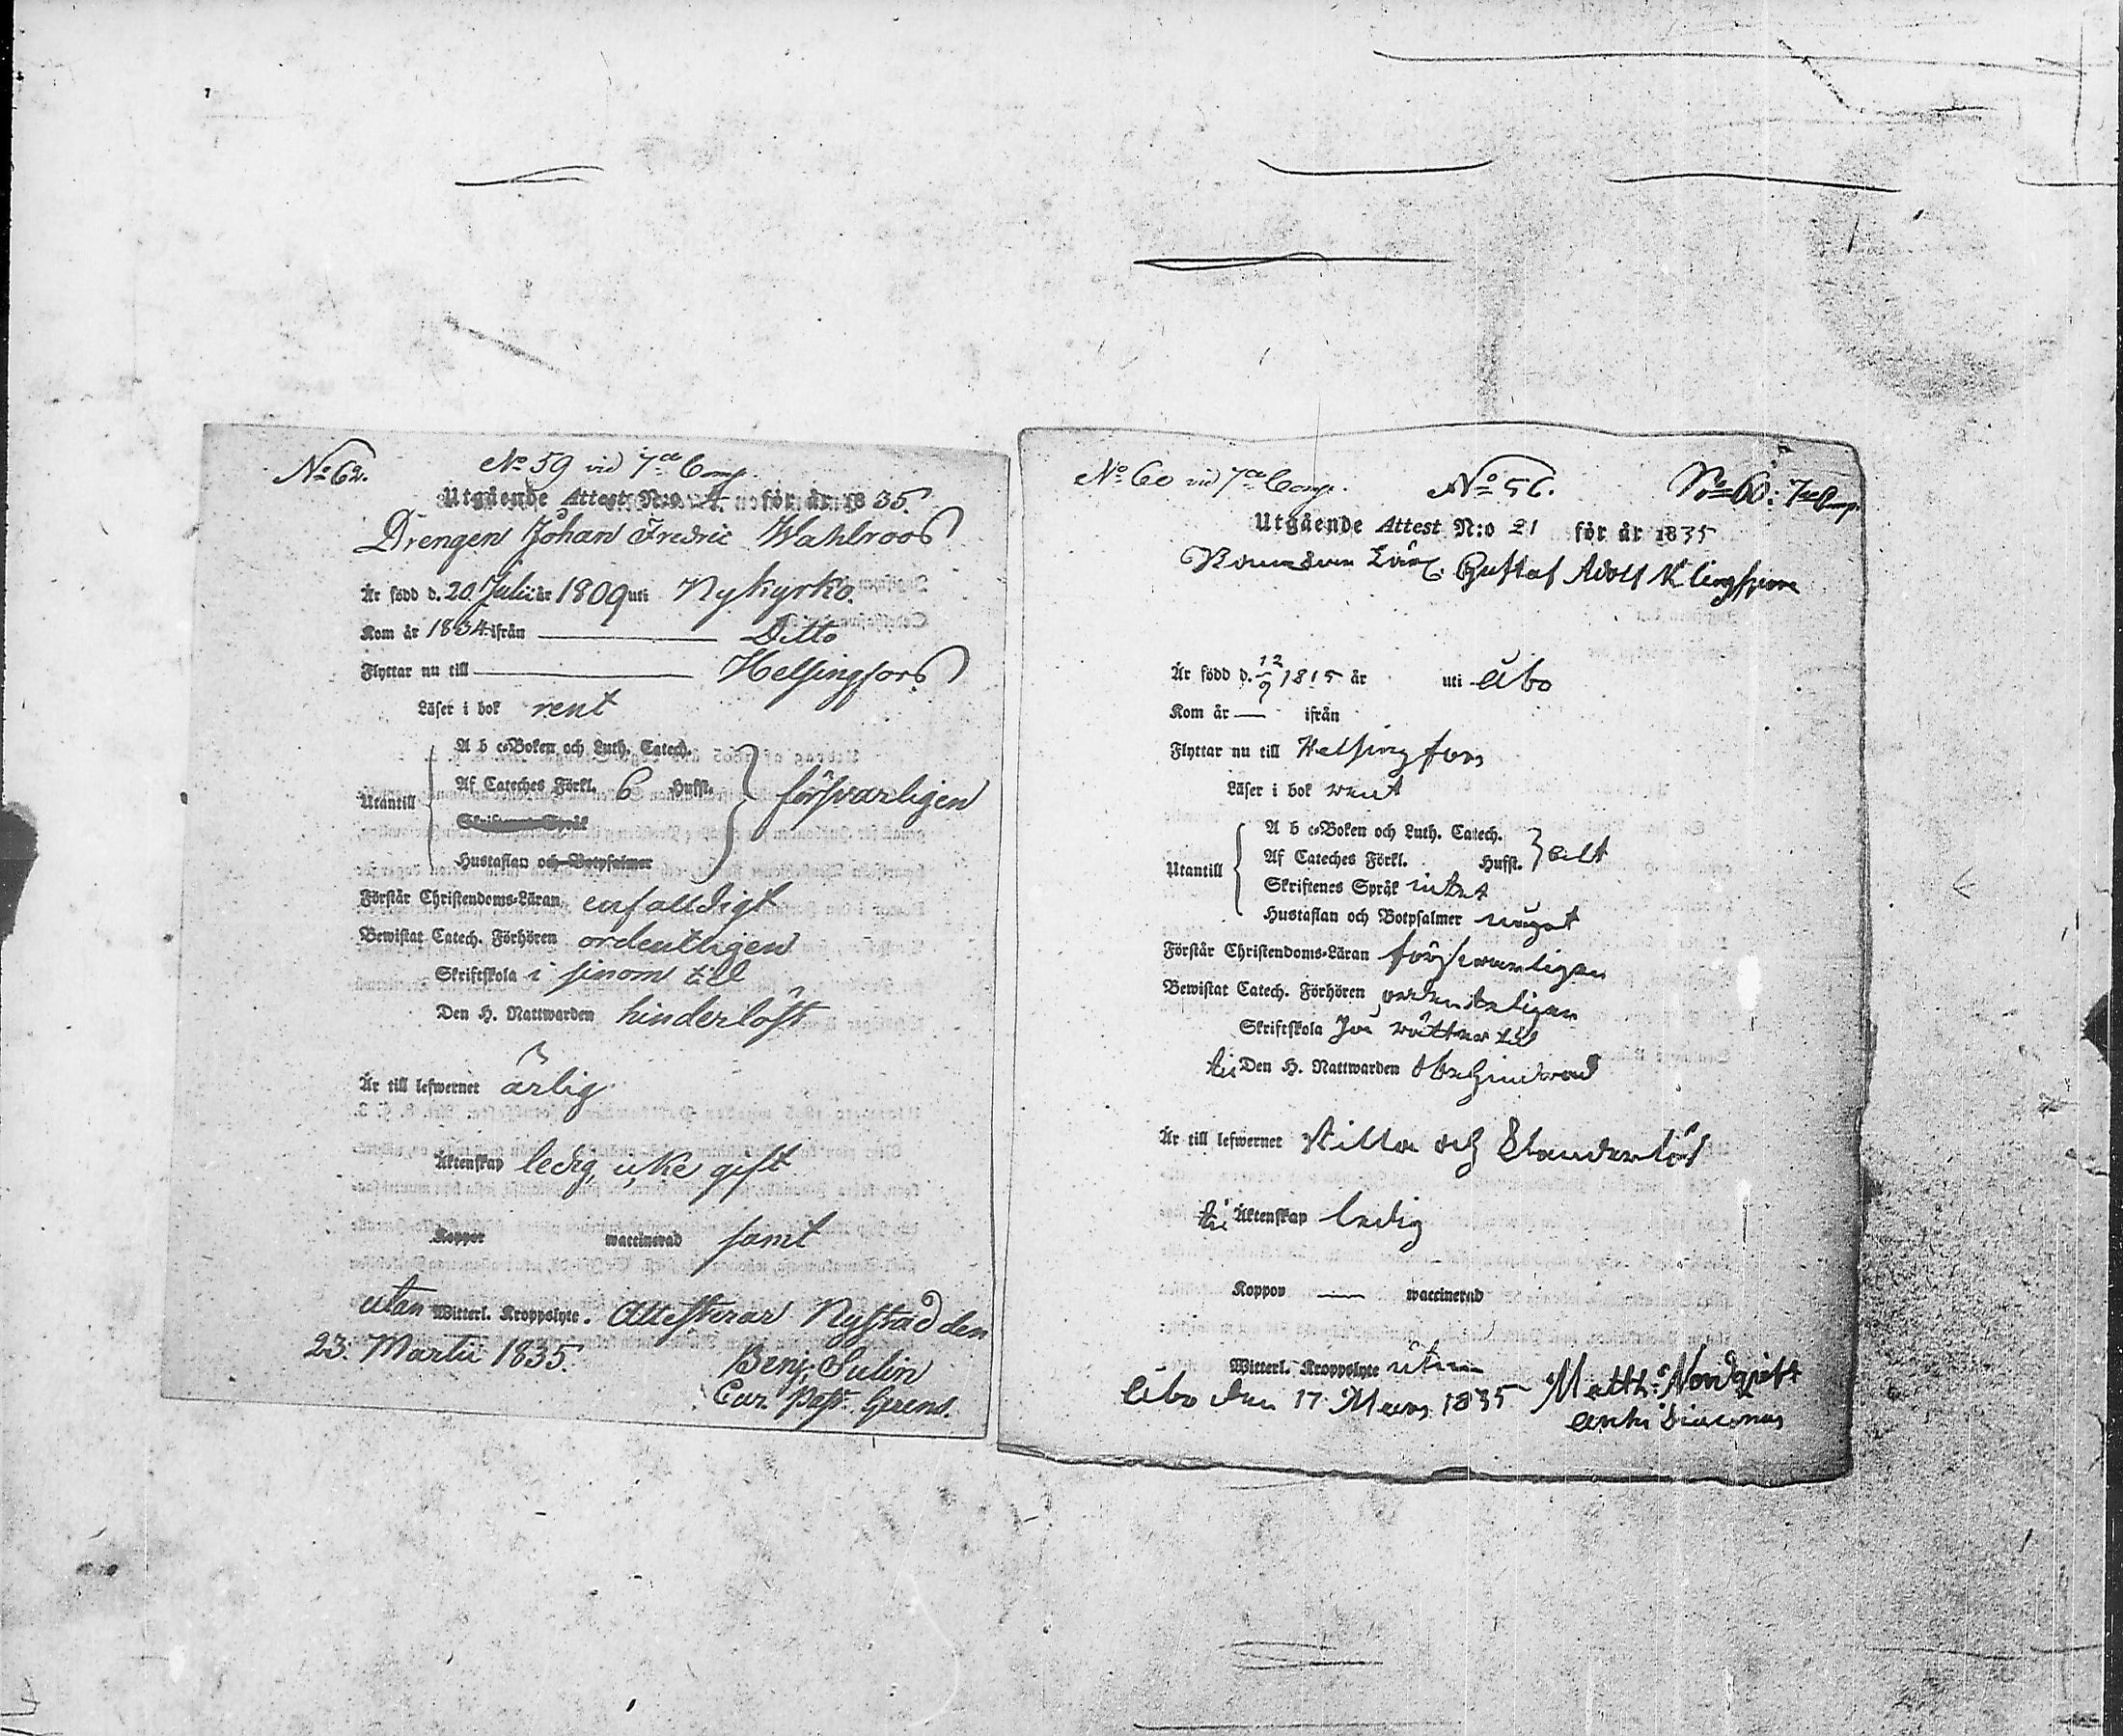 No 62.
No 59 vid 7de Comp.
Utgående Attest N:o 4. för år 1835.
Drengen Johan Fredric Wahlroos
Är född d. 20 Julii år 1809 uti Nykyrko.
Kom år 1834 ifrån Ditto
Flyttar nu till Helsingfors
Läser i bok rent
A b c-Boken och Luth. Catech.
Utantill Af Cateches Förkl. 6 Hufst. försvarligen
Skriftenes Språk
Hustaflan och Botpsalmer
Förstår Christendoms-Läran enfalldigt
Bewistat Catech. Förhören ordentligen
Skriftskola i sinom tid
Den H. Nattwarden hinderlöst
Är till lefwernet ärlig
Äktenskap ledig, icke gift
Koppor waccinerad samt
utan Witterl. Kroppslyte. Attesterar Nystad den
23. Martii 1835.
Benj. Sulin
Cur. Past. Gerens.
No 60 vid 7de Comp. No 56. No 60: 7de Comp.
Utgående Attest N:o 21 för år 1835
Gustaf Adolf Klingspore
Är född d. 12/9 1815 år uti Åbo
Kom år — ifrån
Flyttar nu till Helsingfors
Läser i bok rent
A b c-Boken och Luth. Catech.
Utantill Af Cateches Förkl. Hufst. allt
Skriftenes Språk intet
Hustaflan och Botpsalmer något
Förstår Christendoms-Läran försvarligen
Bewistat Catech. Förhören ordenteligen
Skriftskola
till Den H. Nattwarden obehindrad
Är till lefwernet stilla och klanderlös
till Äktenskap ledig
Koppor — waccinerad
Witterl. Kroppslyte utan
Åbo den 17 Mars 1835 Matth: Nordqvist
Archi Diaconus